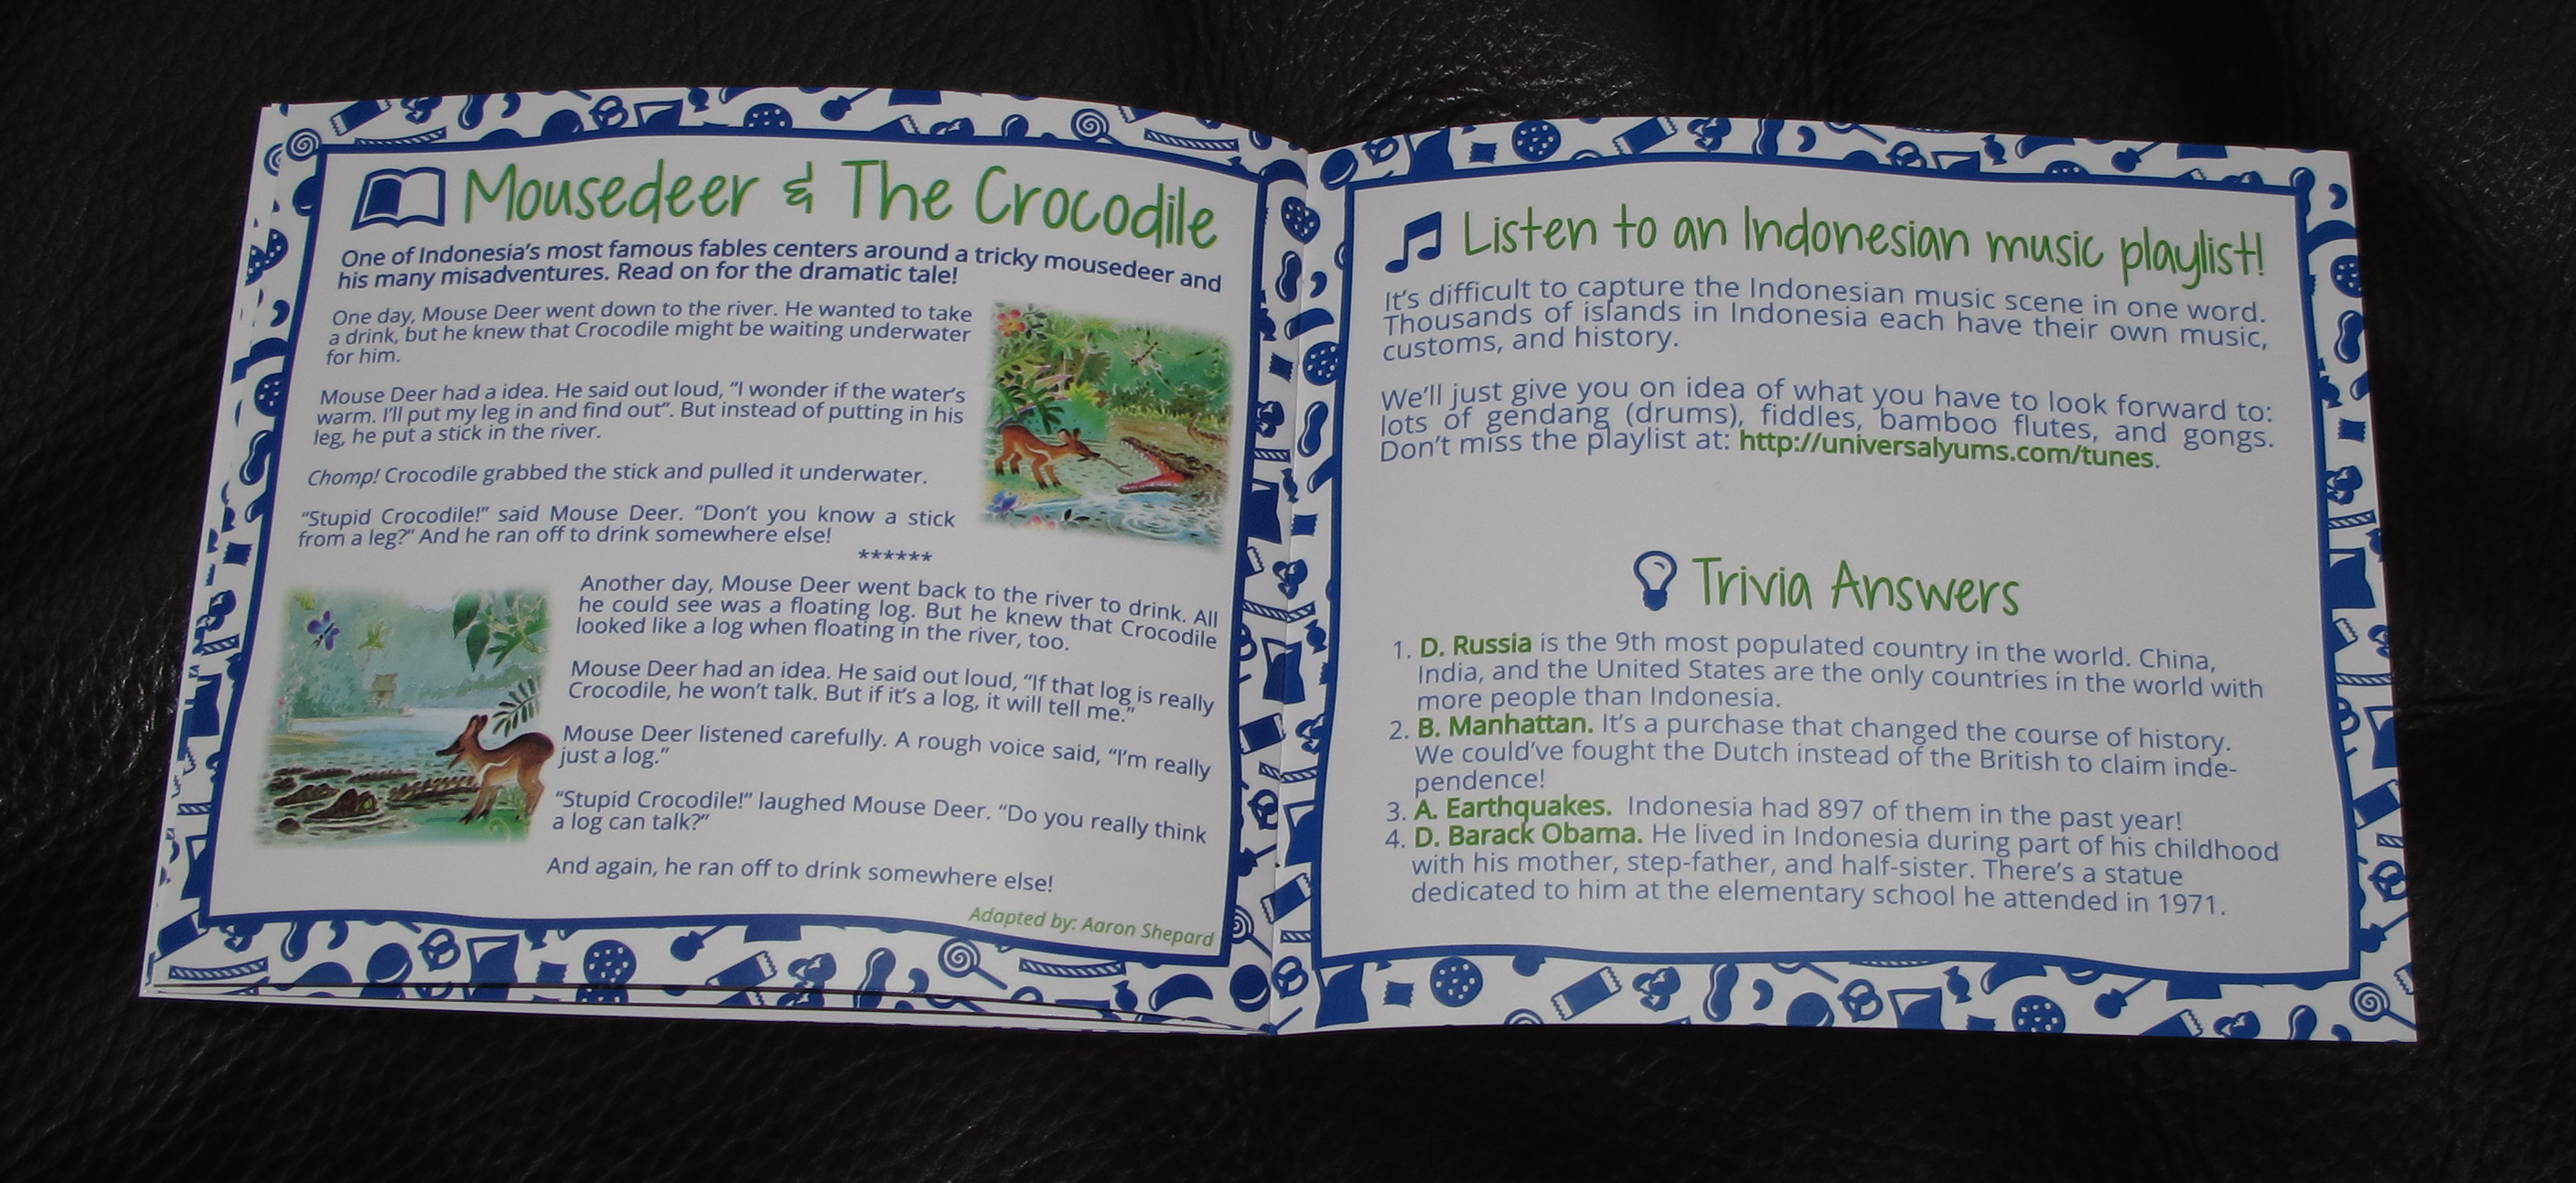 Mousedeer & The Crocodile
One of Indonesia's most famous fables centers around a tricky mousedeer and
his many misadventures. Read on for the dramatic tale!
One day, Mouse Deer went down to the river. He wanted to take
a drink, but he knew that Crocodile might be waiting underwater
for him.
Mouse Deer had a idea. He said out loud, “I wonder if the water's
warm. I'll put my leg in and find out”. But instead of putting in his
leg, he put a stick in the river.
Chomp! Crocodile grabbed the stick and pulled it underwater.
“Stupid Crocodile!” said Mouse Deer. “Don't you know a stick
from a leg?” And he ran off to drink somewhere else!
******
Another day, Mouse Deer went back to the river to drink. All
he could see was a floating log. But he knew that Crocodile
looked like a log when floating in the river, too.
Mouse Deer had an idea. He said out loud, “If that log is really
Crocodile, he won't talk. But if it's a log, it will tell me.”
Mouse Deer listened carefully. A rough voice said, “I'm really
just a log.”
“Stupid Crocodile!” laughed Mouse Deer. “Do you really think
a log can talk?”
And again, he ran off to drink somewhere else!
Adapted by: Aaron Shepard
Listen to an Indonesian music playlist!
It's difficult to capture the Indonesian music scene in one word.
Thousands of islands in Indonesia each have their own music,
customs, and history.
We'll just give you on idea of what you have to look forward to:
lots of gendang (drums), fiddles, bamboo flutes, and gongs.
Don't miss the playlist at: http://universalyums.com/tunes.
Trivia Answers
1. D. Russia is the 9th most populated country in the world. China,
India, and the United States are the only countries in the world with
more people than Indonesia.
2. B. Manhattan. It's a purchase that changed the course of history.
We could've fought the Dutch instead of the British to claim inde-
pendence!
3. A. Earthquakes. Indonesia had 897 of them in the past year!
4. D. Barack Obama. He lived in Indonesia during part of his childhood
with his mother, step-father, and half-sister. There's a statue
dedicated to him at the elementary school he attended in 1971.